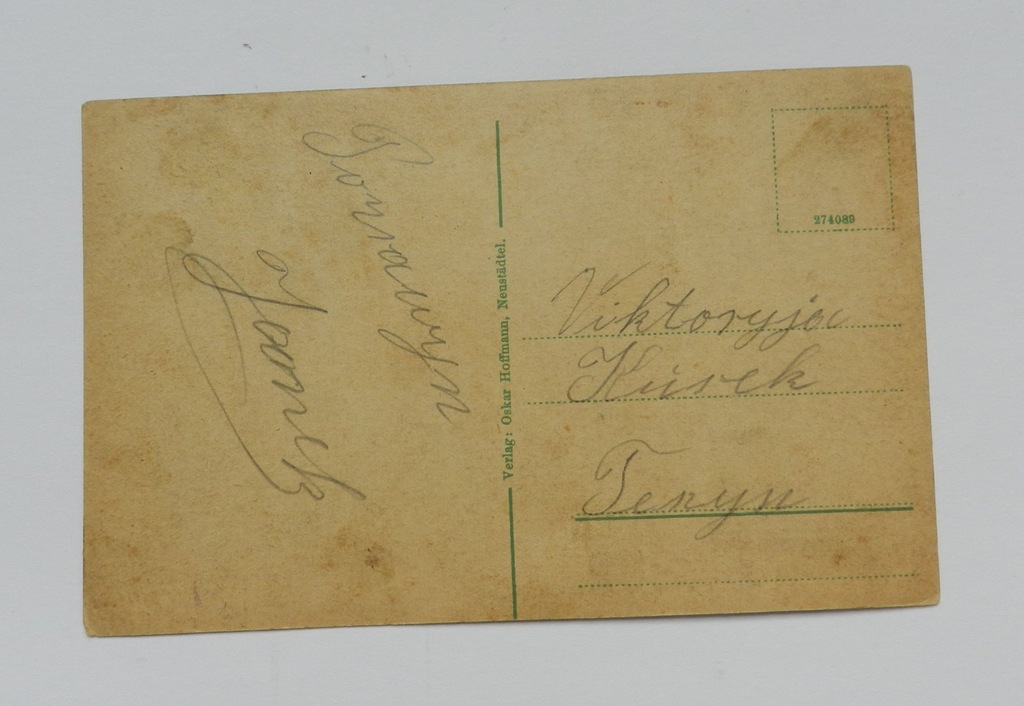 274089
Verlag: Oskar Hoffmann, Neustädtel.
Viktoryja
Kusek
Tenyn
Janek